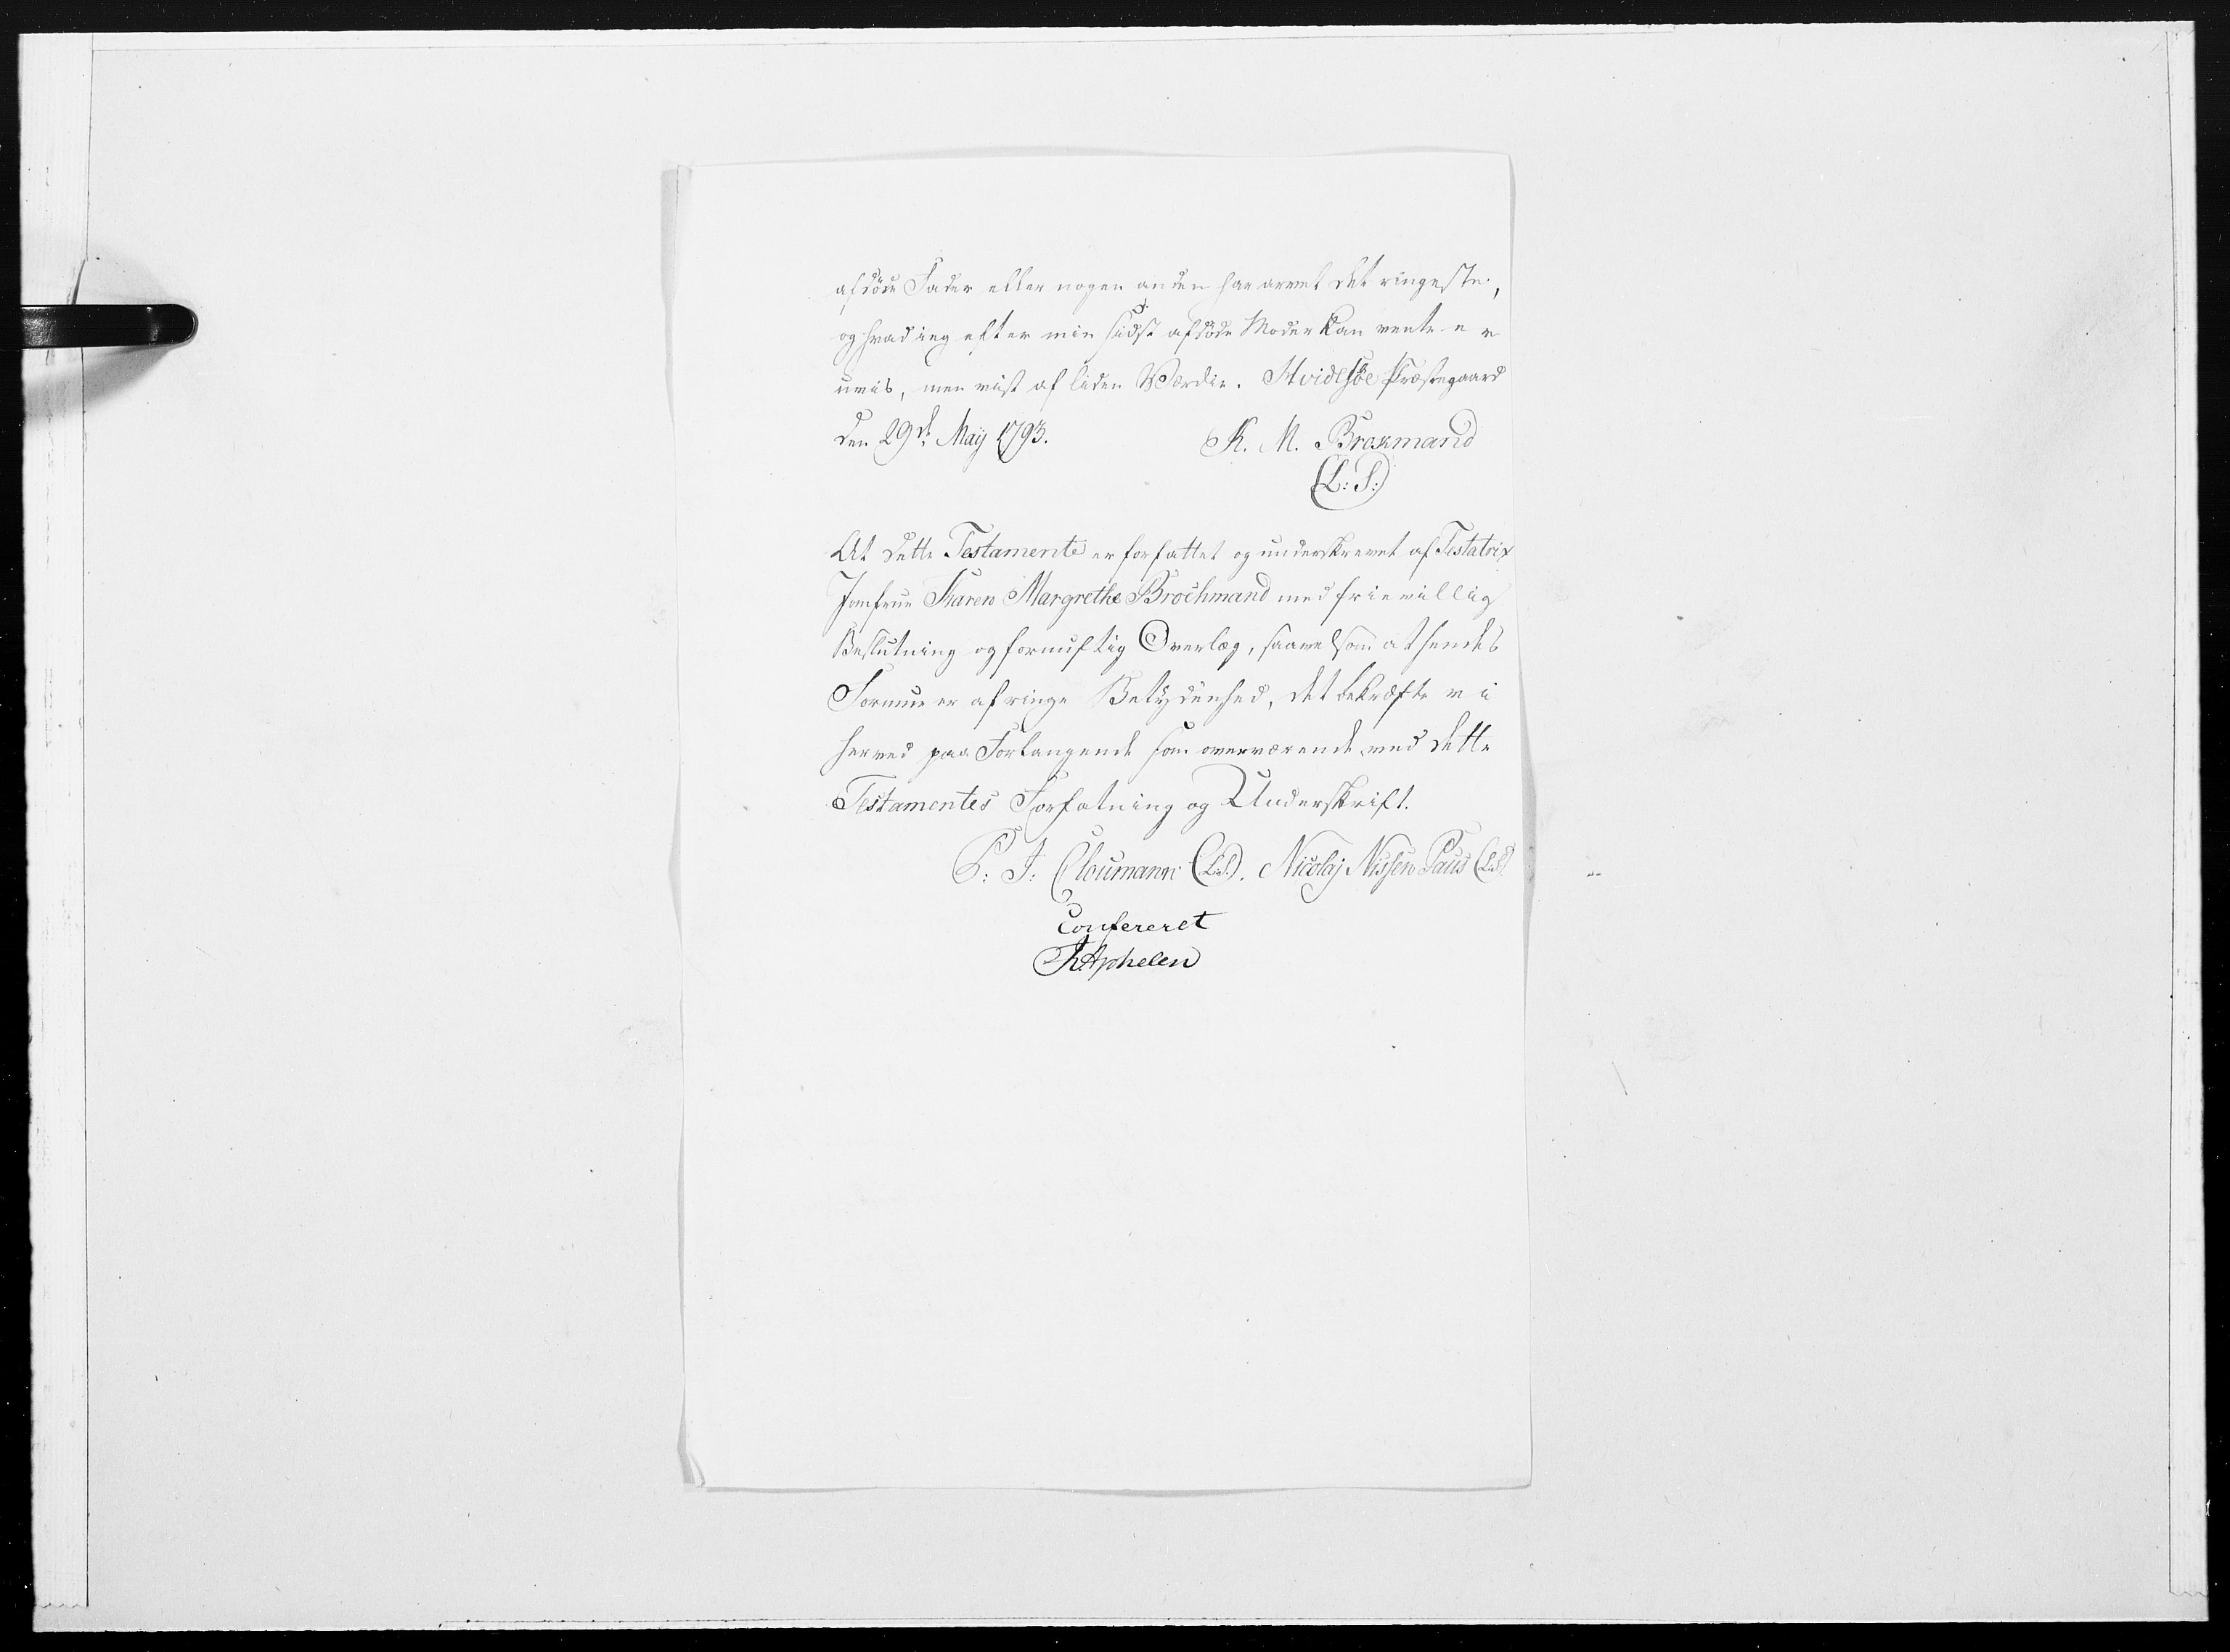 afdøde Fader eller nogen anden har arvet det ringeste,
og hvad ieg efter min sidst afdøde Moder kan vente er
uvis, men vist af liden Værdie. Hvidesøe Præstegaard
den 29de May 1793. K. M. Brokmand
(L: S:)
At dette Testamente er forfattet og underskrevet af Testatrix
Jomfrue Karen Margrethe Brochmand med frievillig
Beslutning og fornuftig Overlæg, saavelsom at hendes
Formue er af ringe Betydenhed, det bekræfte vi
herved paa Forlangende som overværende ved dette
Testamentes Forfatning og Underskrift.
P: J: Cloumann (L:S:). Nicolaj Nissen Paus (L:S:)
Confereret
Aphelen